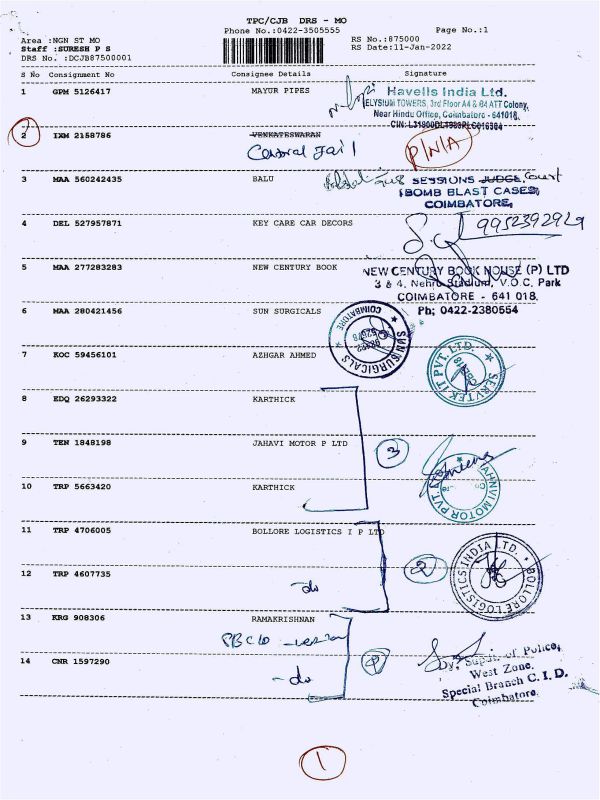 TPC/CJB DRS - MO
Phone No.:0422-3505555 Page No.:1
Area :NGN ST MO RS No.:875000
Staff :SURESH P S RS Date:11-Jan-2022
DRS No. :DCJB87500001
S No Consignment No Consignee Details Signature
1 GPM 5126417 MAYUR PIPES
Havells India Ltd.
ELYSIUM TOWERS, 3rd Floor A4 & 64 ATT Colony,
Near Hindu Office, Coimbatore - 641018.
2 IXM 2158786 VENKATESWARAN
Central Jail P/N/A
3 MAA 560242435 BALU
SESSIONS JUDGE, Court
(BOMB BLAST CASES)
COIMBATORE.
4 DEL 527957871 KEY CARE CAR DECORS 9952392929
5 MAA 277283283 NEW CENTURY BOOK
NEW CENTURY BOOK HOUSE (P) LTD
3 & 4, Nehru Stadium, V.O.C. Park
COIMBATORE - 641 018.
Ph; 0422-2380554
6 MAA 280421456 SUN SURGICALS
SUN SURGICALS COIMBATORE
7 KOC 59456101 AZHGAR AHMED
IT PVT. LTD.
8 EDQ 26293322 KARTHICK
9 TEN 1848198 JAHAVI MOTOR P LTD 3
JAHNVI MOTOR PVT.
10 TRP 5663420 KARTHICK
11 TRP 4706005 BOLLORE LOGISTICS I P LTD
2
BOLLORE LOGISTICS INDIA LTD.
12 TRP 4607735
- do
13 KRG 908306 RAMAKRISHNAN
14 CNR 1597290
- do
Dy. Supdt. of Police,
West Zone.
Special Branch C. I. D.
Coimbatore.
1